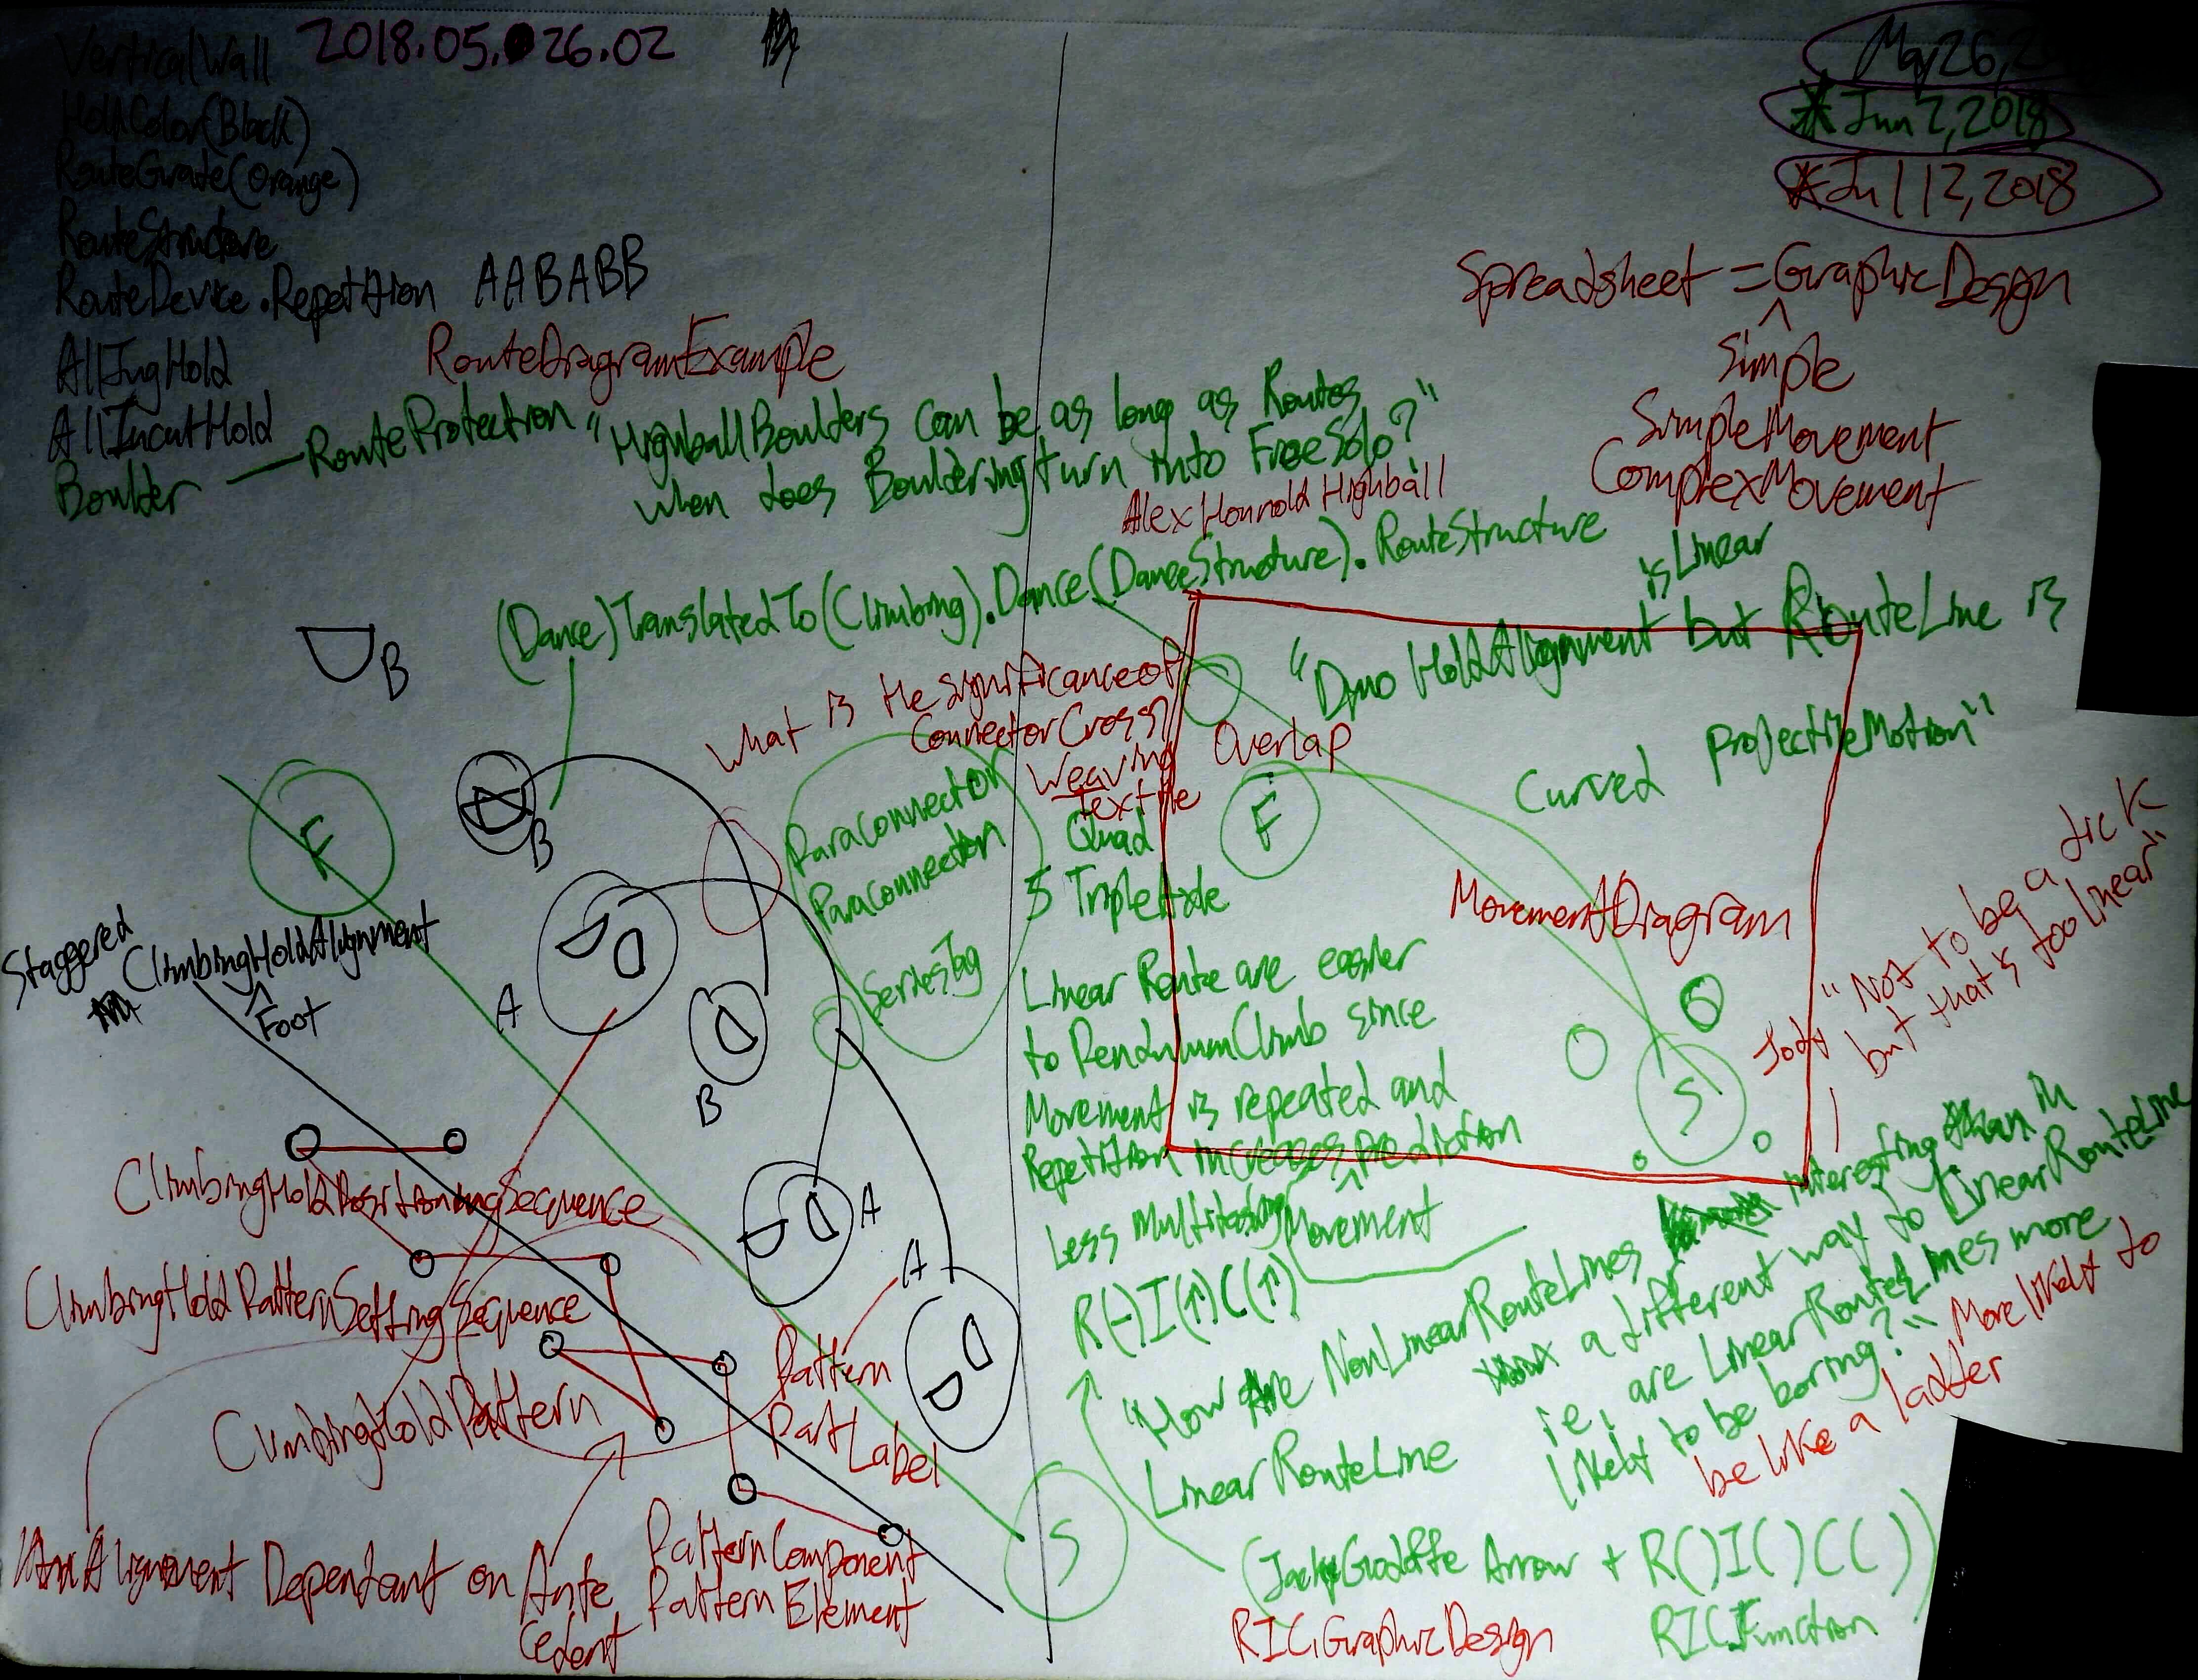 VerticalWall
2018.05.26.02
HoldColor(Black)
RouteGrade(Orange)
RouteStructure
RouteDevice.Repetition AABABB
AllJugHold
AllIncutHold
RouteDiagramExample
Boulder — RouteProtection "HighballBoulders can be as long as Routes
when does Bouldering turn into FreeSolo?"
AlexHonnold Highball
May 26, 2
*Jun 2, 2018
*Jul 12, 2018
Spreadsheet = GraphicDesign
^
Simple
SimpleMovement
ComplexMovement
(Dance)TranslatedTo(Climbing).Dance(DanceStructure).RouteStructure
is Linear
"Dyno HoldAlignment but RouteLine is
Curved ProjectileMotion"
B
What is the significance of
ConnectorCross
Weaving
Textile
Overlap
F
B
Paraconnector
Paraconnection
SeriesTag
Quad
5 Triplet
F
MovementDiagram
S
Jody "Not to be a dick
but that's too linear"
Staggered
ClimbingHoldAlignment
^
Foot
A
B
A
A
Linear Route are easier
to PendulumClimb since
Movement is repeated and
Repetition increases prediction
^
Movement
Less Multitasking
R(-)I(↑)C(↑)
ClimbingHoldPositioningSequence
ClimbingHoldPatternSettingSequence
ClimbingHoldPattern
Pattern
Part Label
PatternComponent
PatternElement
Alignment Dependant on Ante
cedent
S
"How Are NonLinearRouteLines interesting in
a different way to LinearRouteLine
LinearRouteLine
ie, are LinearRouteLines more
likely to be boring?"
More likely to
be like a ladder
(JackyGodoffe Arrow + R()I()C())
RIC.GraphicDesign
RIC.Function